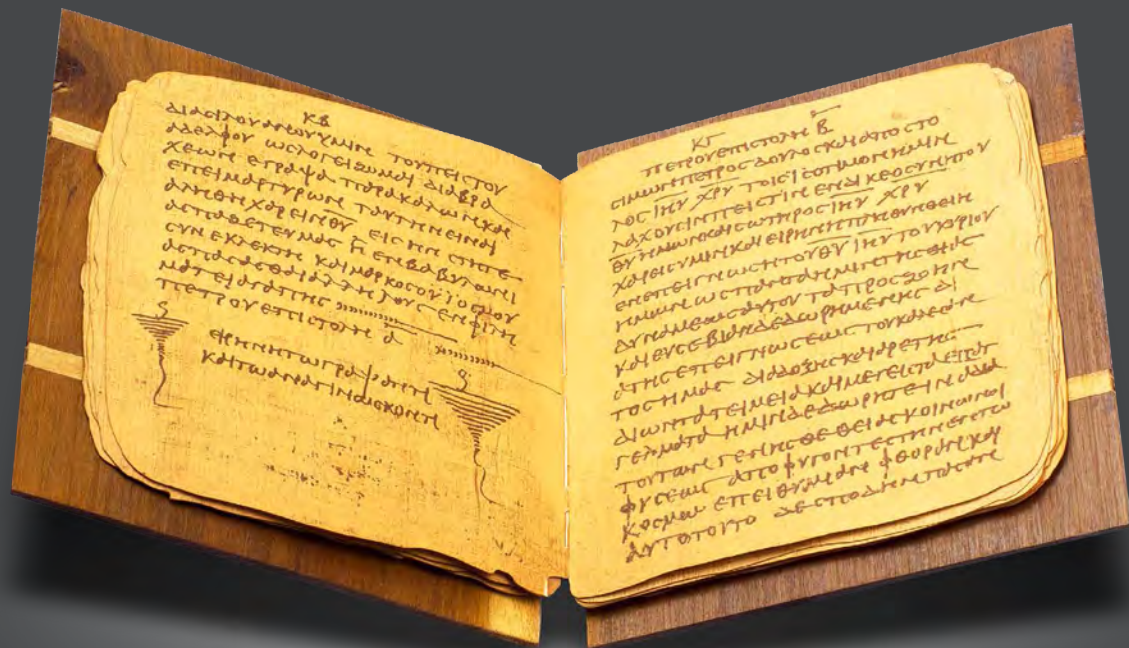 ΚΒ
ΔΙΑ ϹΙΛΟΥΑΝΟΥ ΥΜΙΝ ΤΟΥ ΠΕΙϹΤΟΥ
ΑΔΕΛΦΟΥ ΩϹ ΛΟΓΕΙΖΟΜΑΙ ΔΙΑ ΒΡΑ
ΧΕΩΝ ΕΓΡΑΨΑ ΠΑΡΑΚΑΛΩΝ ΚΑΙ
ΕΠΕΙΜΑΡΤΥΡΩΝ ΤΑΥΤΗΝ ΕΙΝΑΙ
ΑΛΗΘΗ ΧΑΡΕΙΝ ΘΥ ΕΙϹ ΗΝ ϹΤΗΤΕ
ΑϹΠΑΖΕΤΕ ΥΜΑϹ Η ΕΝ ΒΑΒΥΛΩΝΙ
ϹΥΝΕΚΛΕΚΤΗ ΚΑΙ ΜΑΡΚΟϹ Ο ΥΙΟϹ ΜΟΥ
ΑϹΠΑϹΑϹΘΑΙ ΑΛΛΗΛΟΥϹ ΕΝ ΦΙΛΗ
ΜΑΤΕΙ ΑΓΑΠΗϹ
ΠΕΤΡΟΥ ΕΠΙϹΤΟΛΗ Α
ΕΙΡΗΝΗ ΤΩ ΓΡΑΨΑΝΤΙ
ΚΑΙ ΤΩ ΑΝΑΓΙΝΩϹΚΟΝΤΙ
ΚΓ
ΠΕΤΡΟΥ ΕΠΙϹΤΟΛΗ Β
ϹΙΜΩΝ ΠΕΤΡΟϹ ΔΟΥΛΟϹ ΚΑΙ ΑΠΟϹΤΟ
ΛΟϹ ΙΗΥ ΧΡΥ ΤΟΙϹ ΙϹΟΤΙΜΟΝ ΗΜΙΝ
ΛΑΧΟΥϹΙΝ ΠΕΙϹΤΙΝ ΕΝ ΔΙΚΕΟϹΥΝΗ ΤΟΥ
ΘΥ ΗΜΩΝ ΚΑΙ ϹΩΤΗΡΟϹ ΙΗΥ ΧΡΥ
ΧΑΡΕΙϹ ΥΜΙΝ ΚΑΙ ΕΙΡΗΝΗ ΠΛΗΘΥΝΘΕΙΗ
ΕΝ ΕΠΕΙΓΝΩϹΗ ΤΟΥ ΘΥ ΙΗΥ ΤΟΥ ΚΥΡΙΟΥ
ΗΜΩΝ ΩϹ ΠΑΝΤΑ ΗΜΙΝ ΤΗϹ ΘΕΙΑϹ
ΔΥΝΑΜΕΩϹ ΑΥΤΟΥ ΤΑ ΠΡΟϹ ΖΩΗΝ
ΚΑΙ ΕΥϹΕΒΙΑΝ ΔΕΔΩΡΗΜΕΝΗϹ ΔΙ
Α ΤΗϹ ΕΠΕΙΓΝΩϹΕΩϹ ΤΟΥ ΚΑΛΕϹΑΝ
ΤΟϹ ΗΜΑϹ ΔΙΑ ΔΟΞΗϹ ΚΑΙ ΑΡΕΤΗϹ
ΔΙ ΩΝ ΤΑ ΤΕΙΜΕΙΑ ΚΑΙ ΜΕΓΕΙϹΤΑ ΕΠΑΓ
ΓΕΛΜΑΤΑ ΗΜΙΝ ΔΕΔΩΡΗΤΕ ΙΝΑ ΔΙΑ
ΤΟΥΤΩΝ ΓΕΝΗϹΘΕ ΘΕΙΑϹ ΚΟΙΝΩΝΟΙ
ΦΥϹΕΩϹ ΑΠΟΦΥΓΟΝΤΕϹ ΤΗΝ ΕΝ ΤΩ
ΚΟϹΜΩ ΕΠΕΙΘΥΜΙΑΝ ΦΘΟΡΑΝ ΚΑΙ
ΑΥΤΟ ΤΟΥΤΟ ΔΕ ϹΠΟΔΗΝ ΠΑϹΑΝ